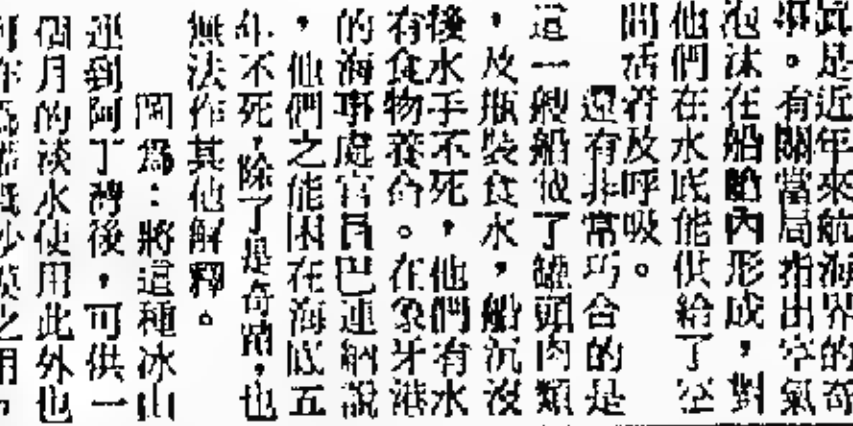 真是近年來航海界的奇
事。有關當局指出空氣
泡沫在船艙內形成,對
他們在水底能供給了空
間活着及呼吸。
還有非常巧合的是
這一艘船做了罐頭肉類
,及瓶裝食水,船沉沒
後水手不死,他們有水
有食物養命。在象牙港
的海事處官員巴連納說
,他們之能困在海底五
年不死,除了是奇蹟,也
無法作其他解釋。
闊爲:將這種冰山
運到阿丁灣後,可供一
個月的淡水使用此外也